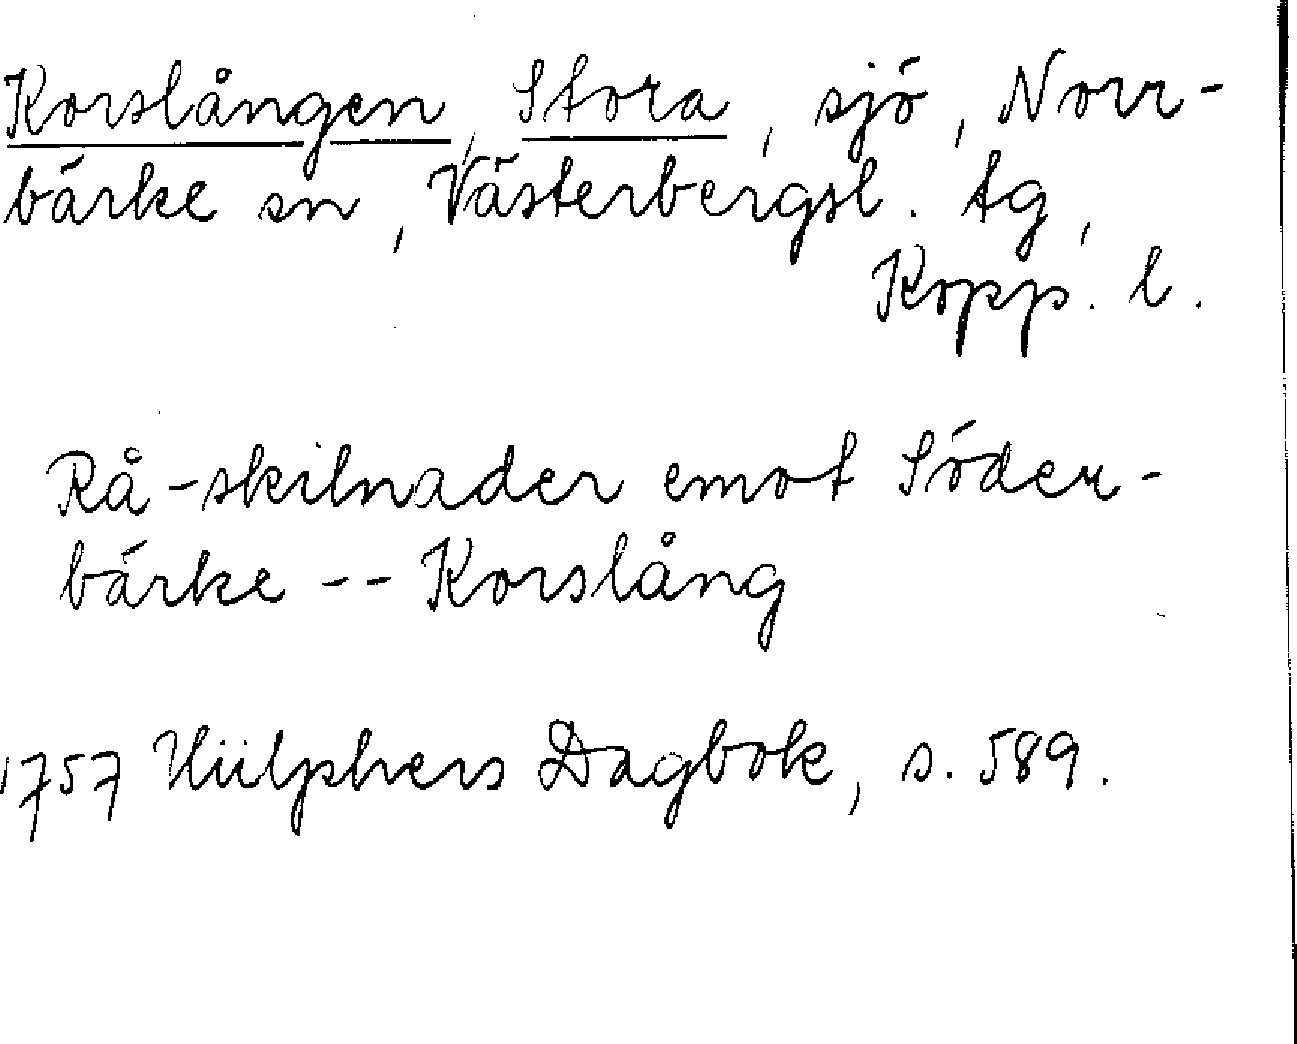 Korslången, Stora, sjö, Norr-
bärke sn, Västerbergsl. tg,
Kopp. l.
Rå-skilnader emot Söder-
bärke -- Korslång
1757 Hülphers Dagbok, s. 589.